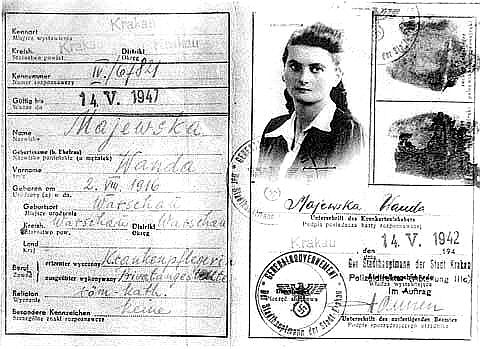 Kennort Krakau
Miejsce wystawienia
Kreish. Krakau Distrikt Krakau
Starostwo powiat. Okręg
Kennummer IV/6/821
Numer rozpoznawczy
Gültig bis 14. V. 1947
Ważna do
Name Majewska
Nazwisko
Geburtsname (b. Ehefrau)
Nazwisko panieńskie (u mężatek)
Vorname Wanda
Imię
Geboren am 2. VIII. 1916
Urodzony(a) w dn.
Geburtsort Warschau
Miejsce urodzenia
Kreish. Warschau Distrikt Warschau
Starostwo pow. Okręg
Land
Kraj
Beruf erlernter wyuczony Krankenpflegerin
Zawód ausgeübter wykonywany Privatangestellte
Religion röm-kath.
Wyznanie
Besondere Kennzeichen keine
Szczególne znaki rozpoznawcze
Majewska Wanda
Unterschrift des Kennkarteninhabers
Podpis posiadacza karty rozpoznawczej
Krakau, den 14. V. 1942 194
Der Stadthauptmann der Stadt Krakau
Polizeidirektion (Abteilung IIIc)
Im Auftrag
GENERALGOUVERNEMENT
Der Stadthauptmann der Stadt Krakau
Unterschrift des ausfertigenden Beamten
Podpis sporządzającego urzędnika